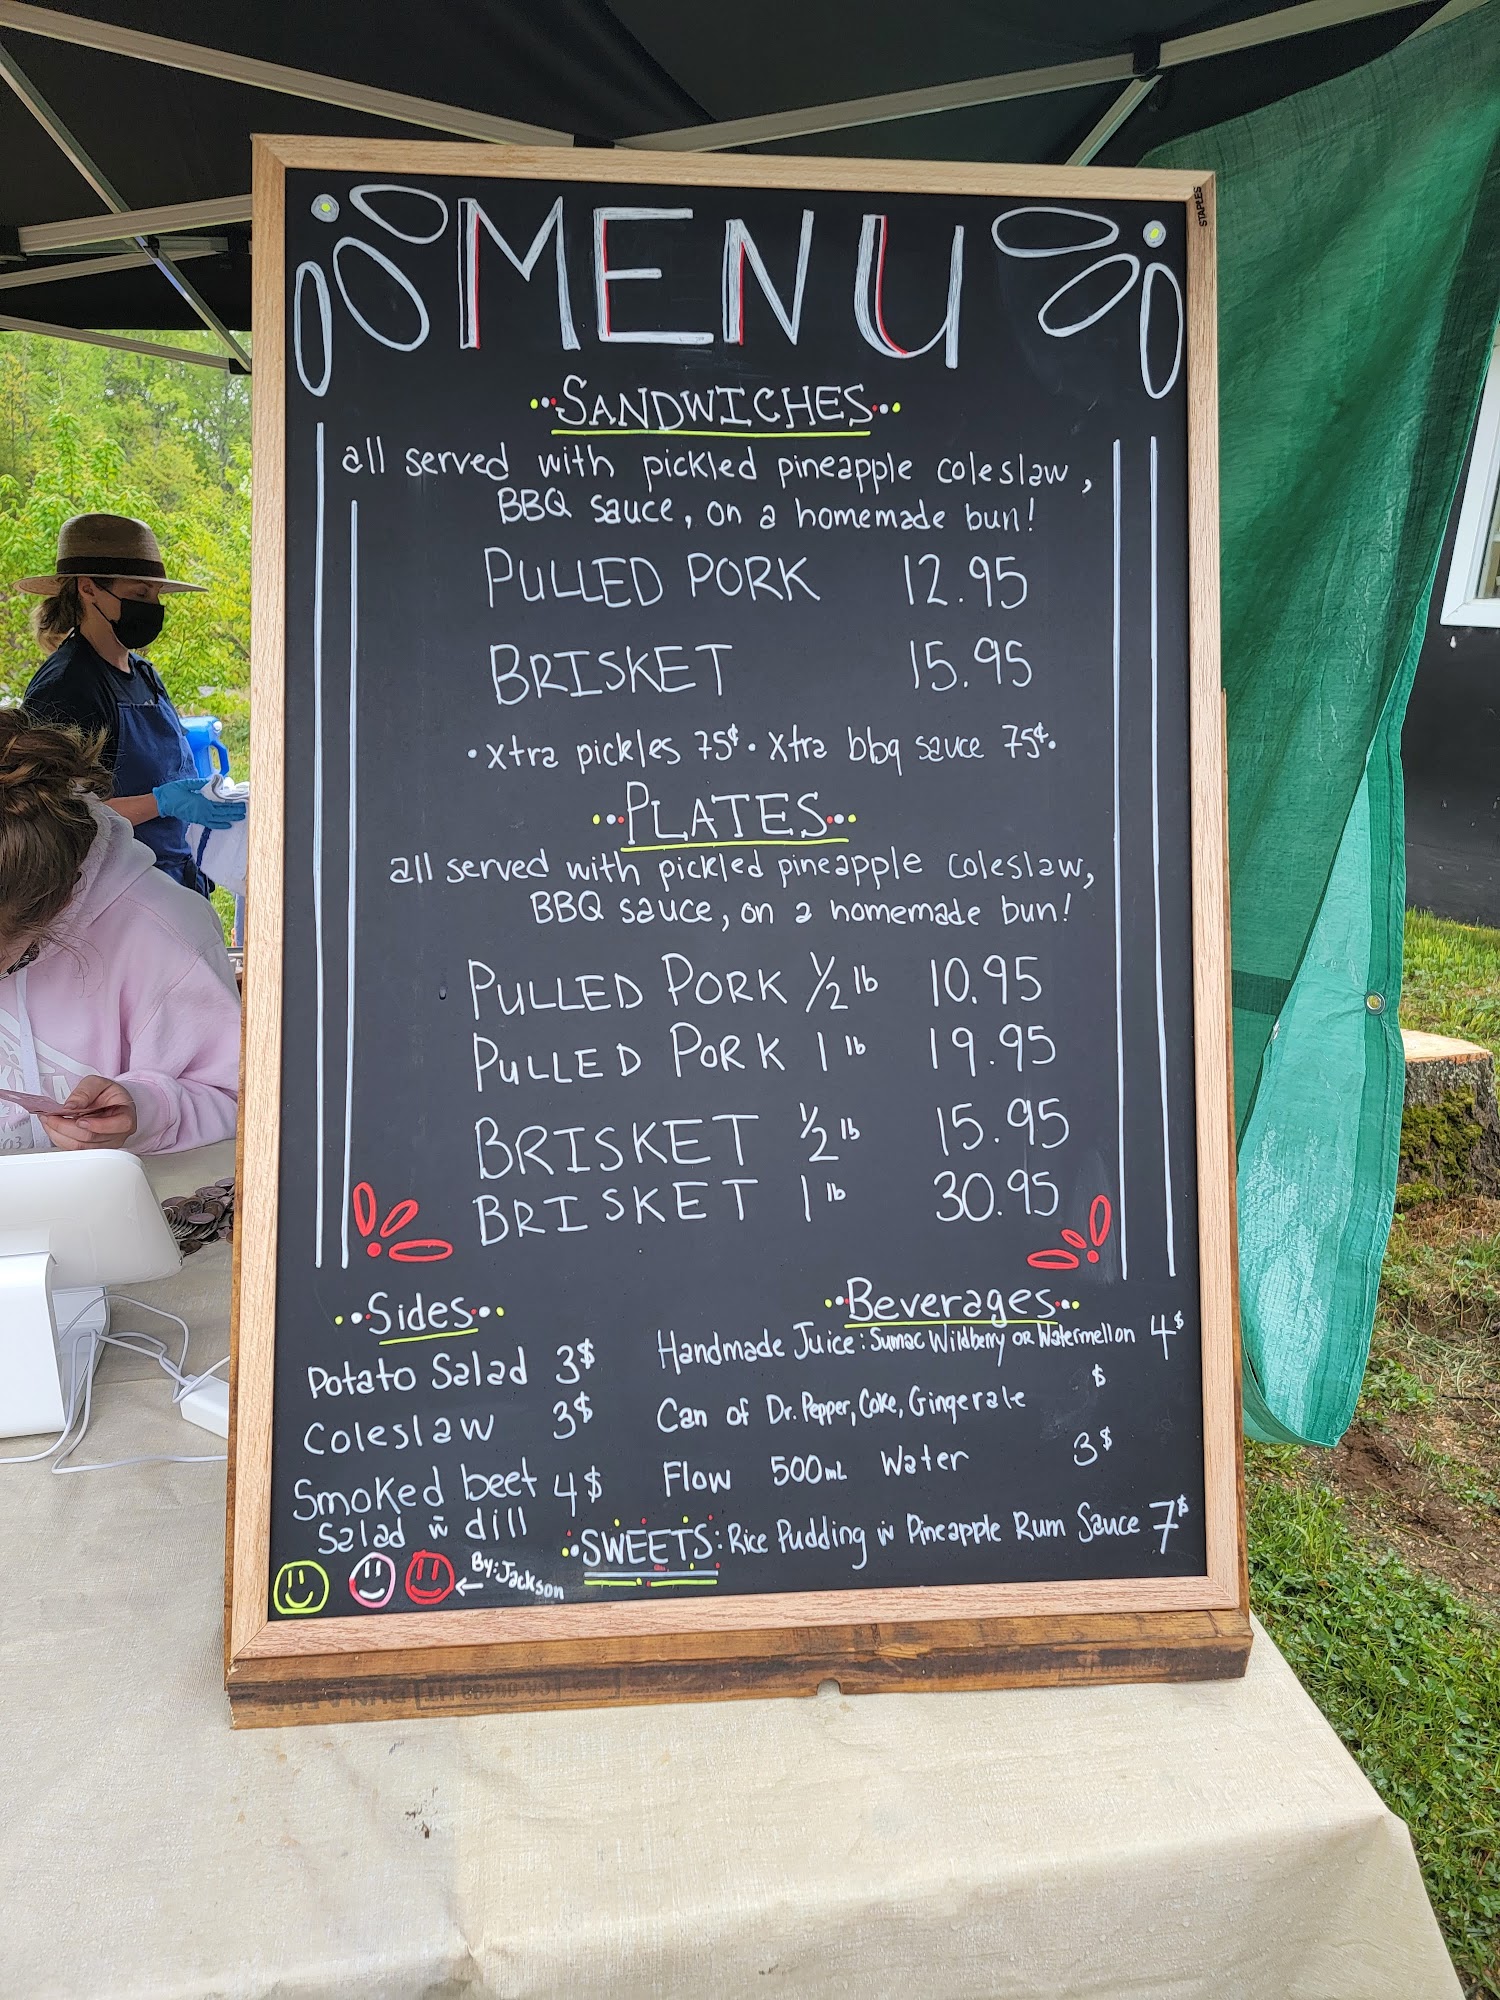 MENU
STAPLES
SANDWICHES
all served with pickled pineapple coleslaw,
BBQ sauce, on a homemade bun!
PULLED PORK 12.95
BRISKET 15.95
• xtra pickles 75¢ • xtra bbq sauce 75¢.
PLATES
all served with pickled pineapple coleslaw,
BBQ sauce, on a homemade bun!
PULLED PORK 1/2 lb 10.95
PULLED PORK 1 lb 19.95
BRISKET 1/2 lb 15.95
BRISKET 1 lb 30.95
Sides
Potato Salad 3$
Coleslaw 3$
Smoked beet 4$
Salad w dill
By: Jackson
Beverages
Handmade Juice: Sumac Wildberry OR Watermellon 4$
Can of Dr. Pepper, Coke, Gingerale $
Flow 500mL Water 3$
SWEETS: Rice Pudding w Pineapple Rum Sauce 7$